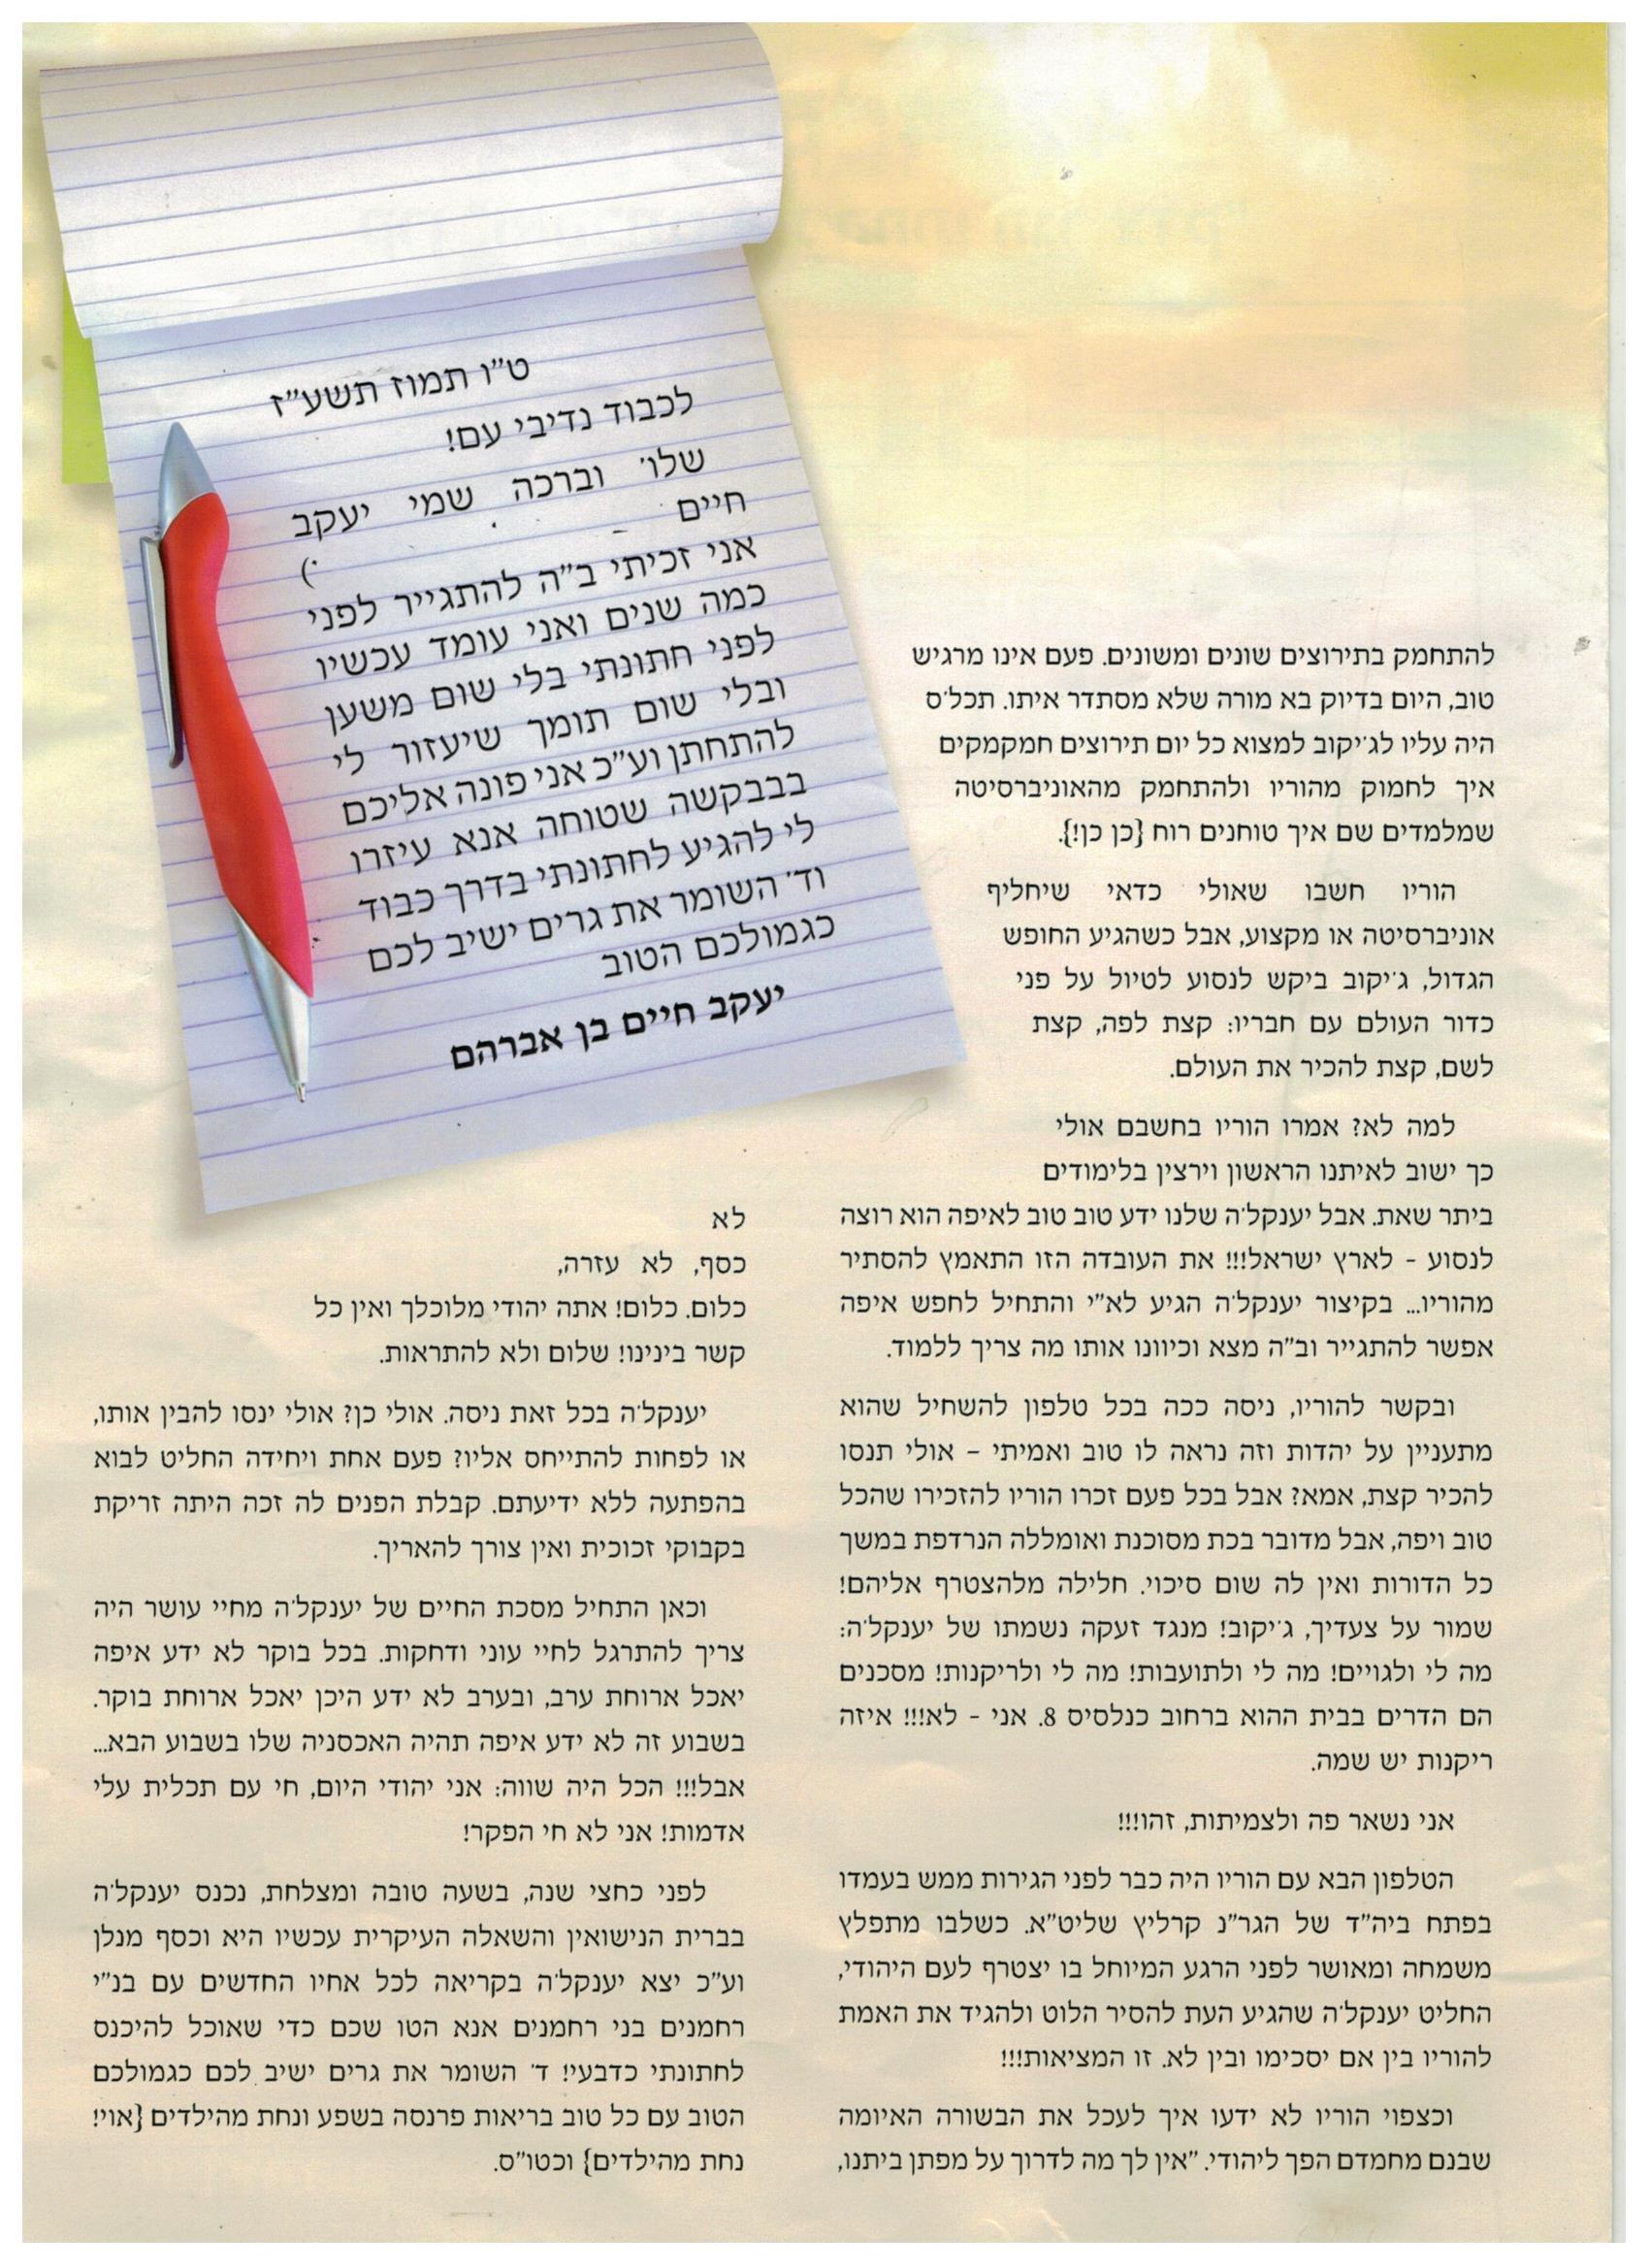 ט"ו תמוז תשע"ז
לכבוד נדיבי עם!
שלו' וברכה שמי יעקב
חיים
אני זכיתי ב"ה להתגייר לפני
כמה שנים ואני עומד עכשיו
לפני חתונתי בלי שום משען
ובלי שום תומך שיעזור לי
להתחתן וע"כ אני פונה אליכם
בבבקשה שטוחה אנא עיזרו
לי להגיע לחתונתי בדרך כבוד
וד' השומר את גרים ישיב לכם
כגמולכם הטוב
יעקב חיים בן אברהם
להתחמק בתירוצים שונים ומשונים. פעם אינו מרגיש
טוב, היום בדיוק בא מורה שלא מסתדר איתו. תכל'ס
היה עליו לג'יקוב למצוא כל יום תירוצים חמקמקים
איך לחמוק מהוריו ולהתחמק מהאוניברסיטה
שמלמדים שם איך טוחנים רוח {כן כן!}.
הוריו חשבו שאולי כדאי שיחליף
אוניברסיטה או מקצוע, אבל כשהגיע החופש
הגדול, ג'יקוב ביקש לנסוע לטיול על פני
כדור העולם עם חבריו: קצת לפה, קצת
לשם, קצת להכיר את העולם.
למה לא? אמרו הוריו בחשבם אולי
כך ישוב לאיתנו הראשון וירצין בלימודים
ביתר שאת. אבל יענקל'ה שלנו ידע טוב טוב לאיפה הוא רוצה
לנסוע - לארץ ישראל!!! את העובדה הזו התאמץ להסתיר
מהוריו... בקיצור יענקל'ה הגיע לא"י והתחיל לחפש איפה
אפשר להתגייר וב"ה מצא וכיוונו אותו מה צריך ללמוד.
ובקשר להוריו, ניסה ככה בכל טלפון להשחיל שהוא
מתעניין על יהדות וזה נראה לו טוב ואמיתי – אולי תנסו
להכיר קצת, אמא? אבל בכל פעם זכרו הוריו להזכירו שהכל
טוב ויפה, אבל מדובר בכת מסוכנת ואומללה הנרדפת במשך
כל הדורות ואין לה שום סיכוי. חלילה מלהצטרף אליהם!
שמור על צעדיך, ג'יקוב! מנגד זעקה נשמתו של יענקל'ה:
מה לי ולגויים! מה לי ולתועבות! מה לי ולריקנות! מסכנים
הם הדרים בבית ההוא ברחוב כנלסיס 8. אני - לא!!! איזה
ריקנות יש שמה.
אני נשאר פה ולצמיתות, זהו!!!
הטלפון הבא עם הוריו היה כבר לפני הגירות ממש בעמדו
בפתח ביה"ד של הגר"נ קרליץ שליט"א. כשלבו מתפלץ
משמחה ומאושר לפני הרגע המיוחל בו יצטרף לעם היהודי,
החליט יענקל'ה שהגיע העת להסיר הלוט ולהגיד את האמת
להוריו בין אם יסכימו ובין לא. זו המציאות!!!
וכצפוי הוריו לא ידעו איך לעכל את הבשורה האיומה
שבנם מחמדם הפך ליהודי. "אין לך מה לדרוך על מפתן ביתנו,
לא
כסף, לא עזרה,
כלום. כלום! אתה יהודי מלוכלך ואין כל
קשר בינינו! שלום ולא להתראות.
יענקל'ה בכל זאת ניסה. אולי כן? אולי ינסו להבין אותו,
או לפחות להתייחס אליו? פעם אחת ויחידה החליט לבוא
בהפתעה ללא ידיעתם. קבלת הפנים לה זכה היתה זריקת
בקבוקי זכוכית ואין צורך להאריך.
וכאן התחיל מסכת החיים של יענקל'ה מחיי עושר היה
צריך להתרגל לחיי עוני ודחקות. בכל בוקר לא ידע איפה
יאכל ארוחת ערב, ובערב לא ידע היכן יאכל ארוחת בוקר.
בשבוע זה לא ידע איפה תהיה האכסניה שלו בשבוע הבא...
אבל!!! הכל היה שווה: אני יהודי היום, חי עם תכלית עלי
אדמות! אני לא חי הפקר!
לפני כחצי שנה, בשעה טובה ומצלחת, נכנס יענקל'ה
בברית הנישואין והשאלה העיקרית עכשיו היא וכסף מנלן
וע"כ יצא יענקל'ה בקריאה לכל אחיו החדשים עם בנ"י
רחמנים בני רחמנים אנא הטו שכם כדי שאוכל להיכנס
לחתונתי כדבעי! ד' השומר את גרים ישיב לכם כגמולכם
הטוב עם כל טוב בריאות פרנסה בשפע ונחת מהילדים {אוי!
נחת מהילדים} וכטו"ס.